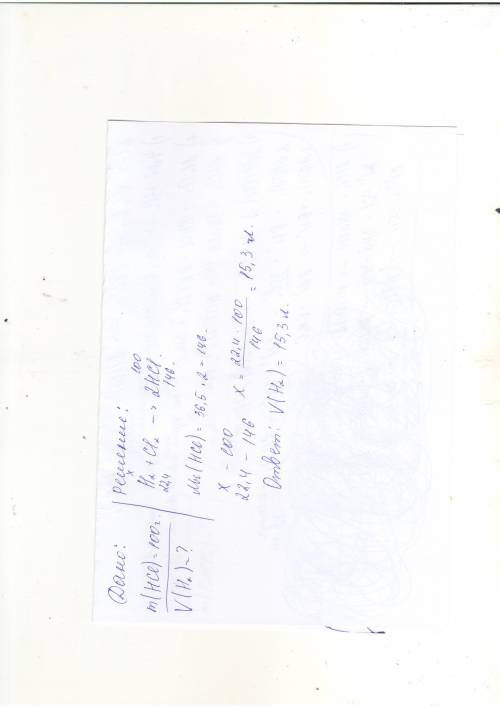 Дано:
m(HCl)=100г.
V(H₂)=?
Решение:
x 100
H₂ + Cl₂ → 2HCl
22,4 146.
M(HCl) = 36,5 · 2 = 146.
x – 100
22,4 – 146 x = 22,4 · 100 / 146 = 15,3 л.
Ответ: V(H₂) = 15,3 л.